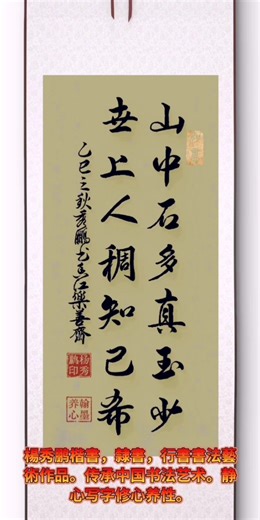 山中石多真玉少
世上人稠知己希
乙巳之秋秀鹏书于江樂善齊
楊秀鵬印
翰墨养心
楊秀鹏楷書，隸書，行書書法藝
術作品。传承中国书法艺术。静
心写字修心养性。